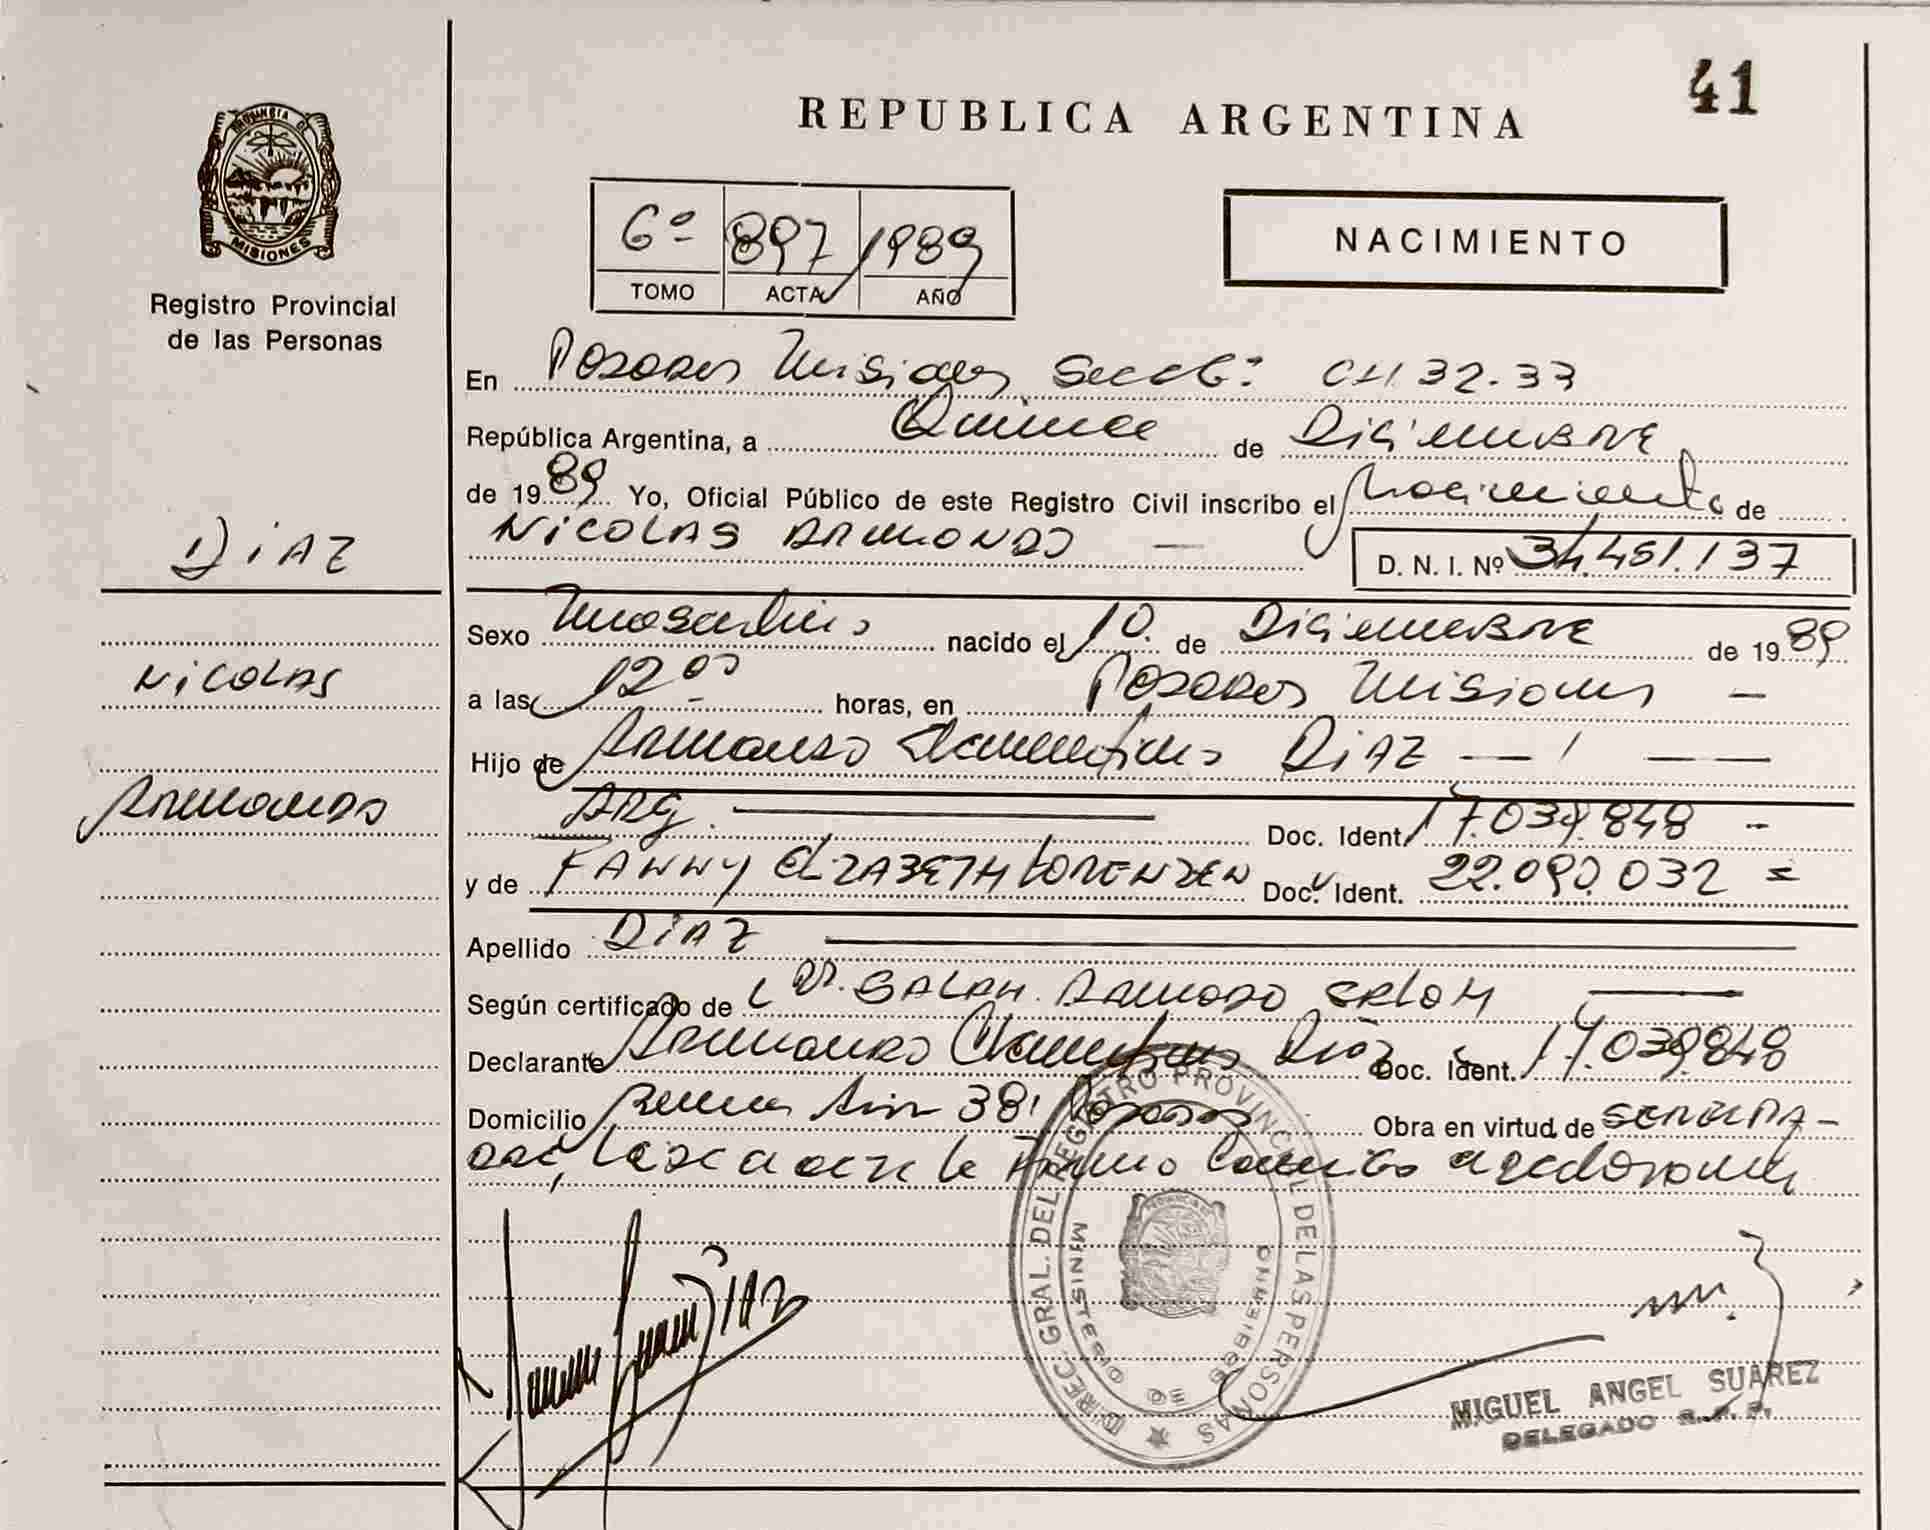 41
REPUBLICA ARGENTINA
PROVINCIA DE
MISIONES
Registro Provincial
de las Personas
6º 897 1989
TOMO ACTA AÑO
NACIMIENTO
En Posadas Misiones Secc 6ª CH 32-33
República Argentina, a Quince de Diciembre
de 1989 Yo, Oficial Público de este Registro Civil inscribo el Nacimiento de
NICOLAS ARMANDO
D. N. I. Nº 34.451.137
DIAZ
Sexo Masculino nacido el 10 de Diciembre de 1989
NICOLAS
a las 12 00 horas, en Posadas Misiones
Hijo de Armando Clementino DIAZ
Armando
ARG. Doc. Ident. 17.039.848
y de FANNY ELIZABETH LORENZEN Doc. Ident. 22.090.032
Apellido DIAZ
Según certificado de Dr. Armando
Declarante Armando Clementino Diaz Doc. Ident. 17.039.848
Domicilio 381 Posadas Obra en virtud de
DIREC. GRAL. DEL REGISTRO PROVINCIAL DE LAS PERSONAS
MINISTERIO DE GOBIERNO
DIAZ
MIGUEL ANGEL SUAREZ
DELEGADO R.P.P.